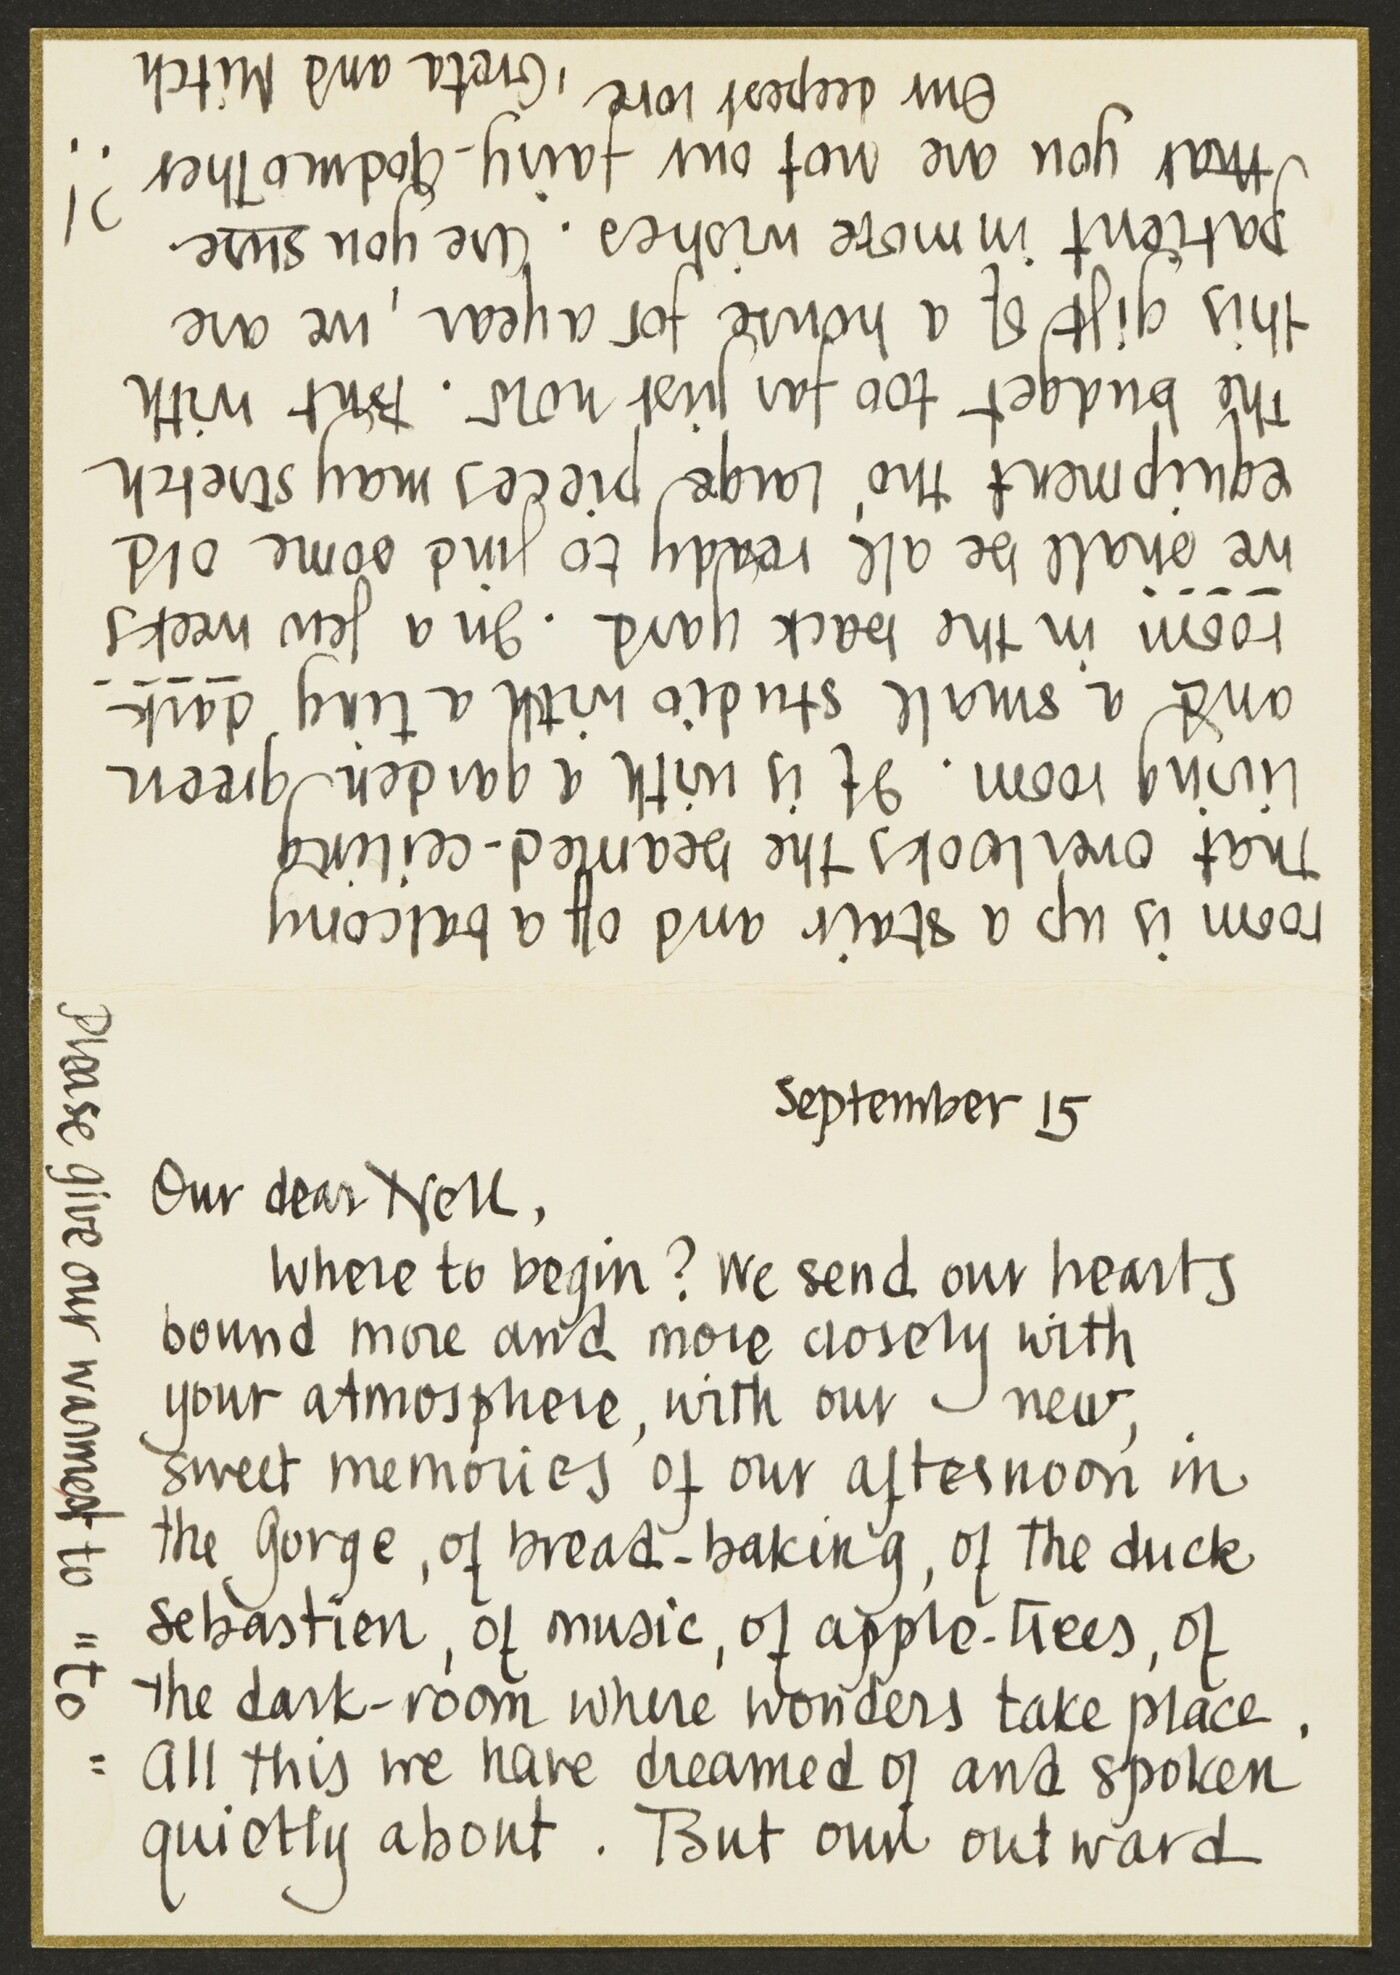 September 15
Our dear Nell,
Where to begin? We send our hearts
bound more and more closely with
your atmosphere, with our new,
sweet memories of our afternoon in
the Gorge, of bread-baking, of the duck
Sebastien, of music, of apple-trees, of
the dark-room where wonders take place.
All this we have dreamed of and spoken
quietly about. But our outward
room is up a stair and off a balcony
that overlooks the beamed-ceiling
living room. It is with a garden green
and a small studio with a tiny dark
room in the back yard. In a few weeks
we shall be all ready to find some old
equipment tho' large pieces may stretch
the budget too far just now. But with
this gift of a house for a year, we are
patient in more wishes. Are you sure
that you are not our fairy-Godmother?!
Our deepest love, Greta and Mitch
Please give our warmest to "to"